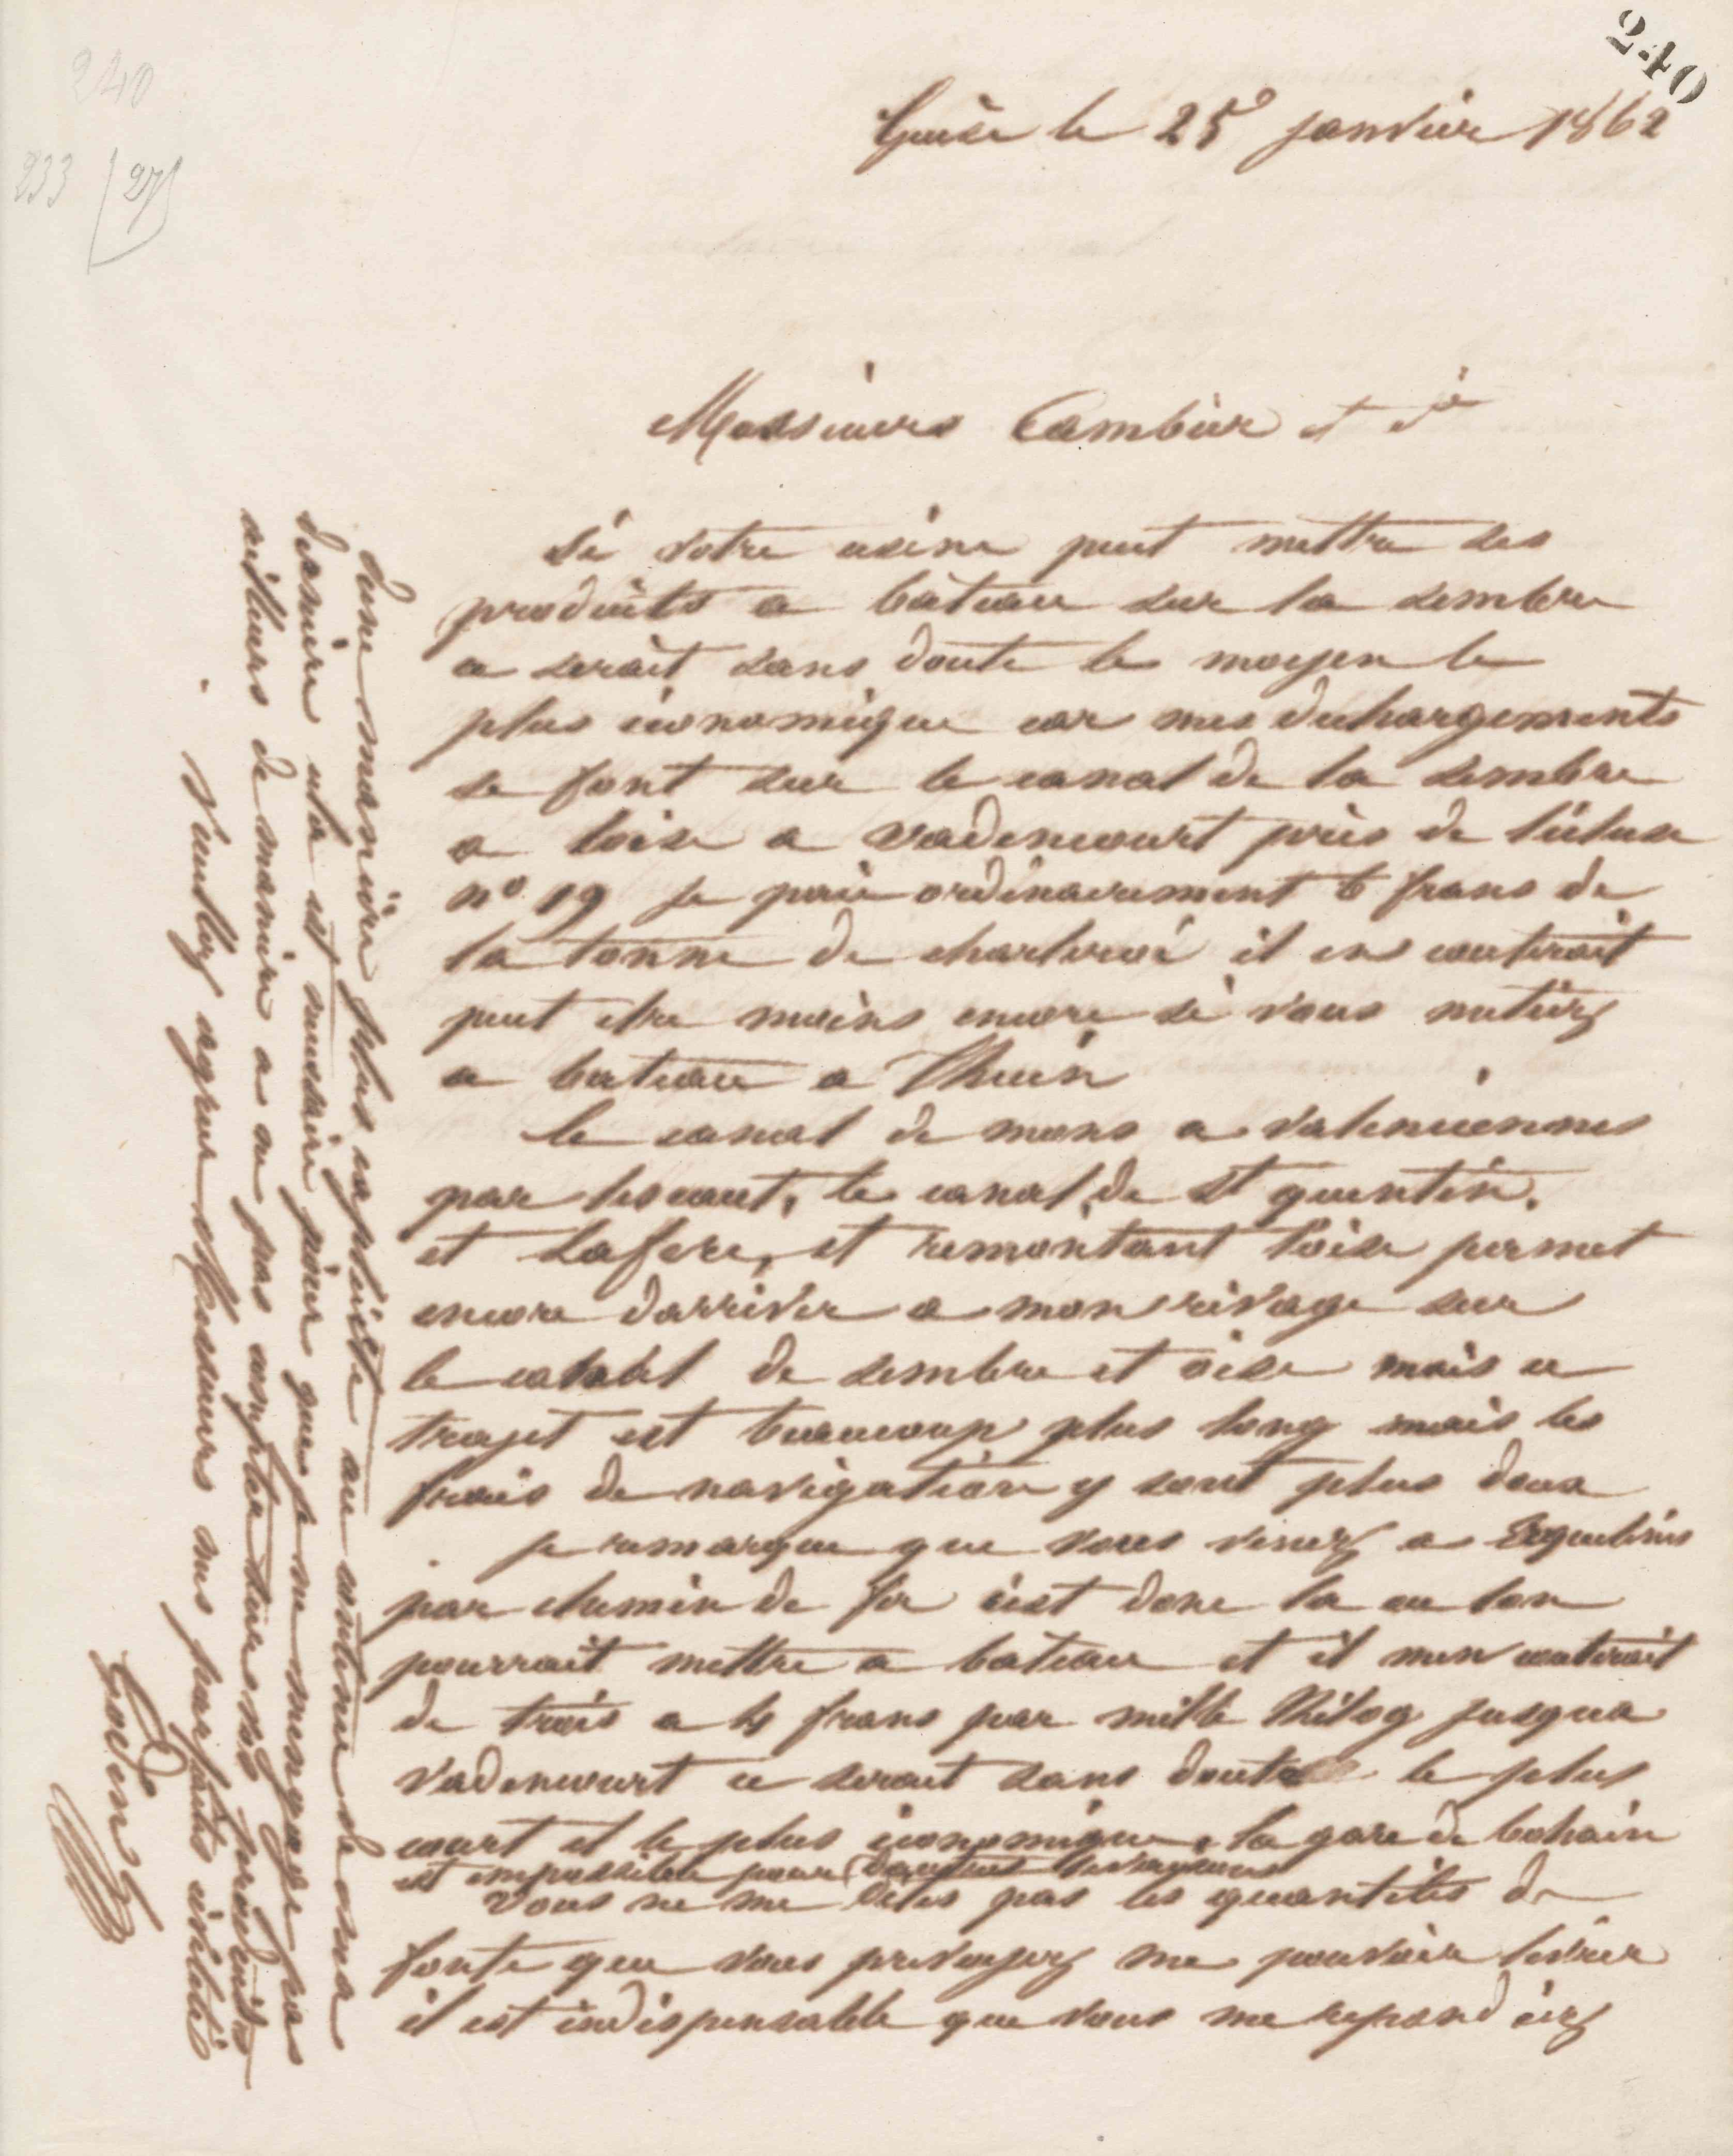 240
240
233 27
Guise le 25 janvier 1862
Messieurs Cambier et Cie
si votre usine peut mettre ses
produits a bateau sur la sembre
ce serait sans doute le moyen le
plus économique car mes dechargements
se font sur le canal de la sembre
a loise a vadencourt près de lécluse
n° 19 je paie ordinairement 6 frans de
la tonne de charleroi il en couterait
peut etre moins encore si vous mettiez
a bateau a Thuin
le canal de mons a valenciennes
par lescaut, le canal de St quentin,
et Lafere, et remontant loise permet
encore darriver a mon rivage sur
le canal de sembre et oise mais ce
trajet est beaucoup plus long mais les
frais de navigation y sont plus doux
je remarque que vous venez a Erquelines
par chemin de fer cest donc la ou lon
pourrait mettre a bateau et il men couterait
de trois a 4 frans par mille Kilog jusqua
vadencourt ce serait sans doute le plus
court et le plus économique, la gare de bohain
est impossible pour
vous ne me dites pas les quantités de
fonte que vous prevoyez me pouvoir livrer
il est indispensable que vous me repondiez
dune manière plus explicite au contenu de ma
dernière cela est necessaire pour que je ne mengage pas
ailleurs de maniere a ne pas compter sur vos produits
Veuillez agreer Messieurs mes parfaites civilités
Godin